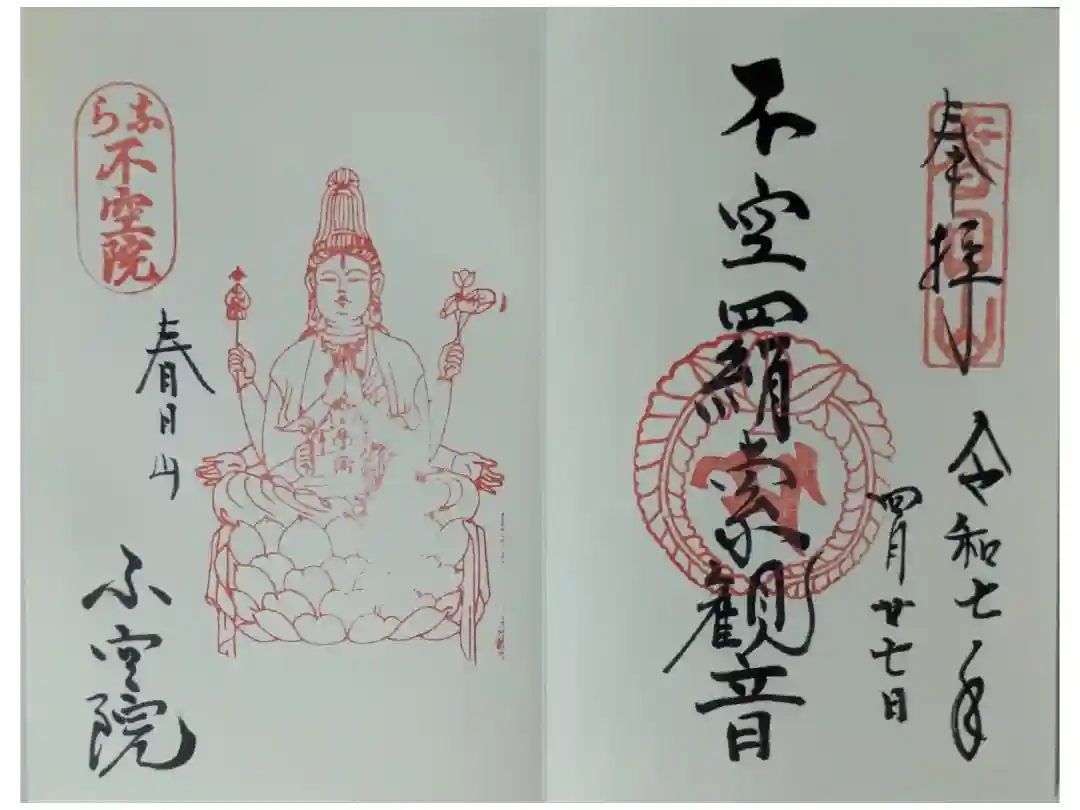 奉拝
春日山
令和七年
四月廿七日
不空羂索観音
なら
不空院
春日山
不空院